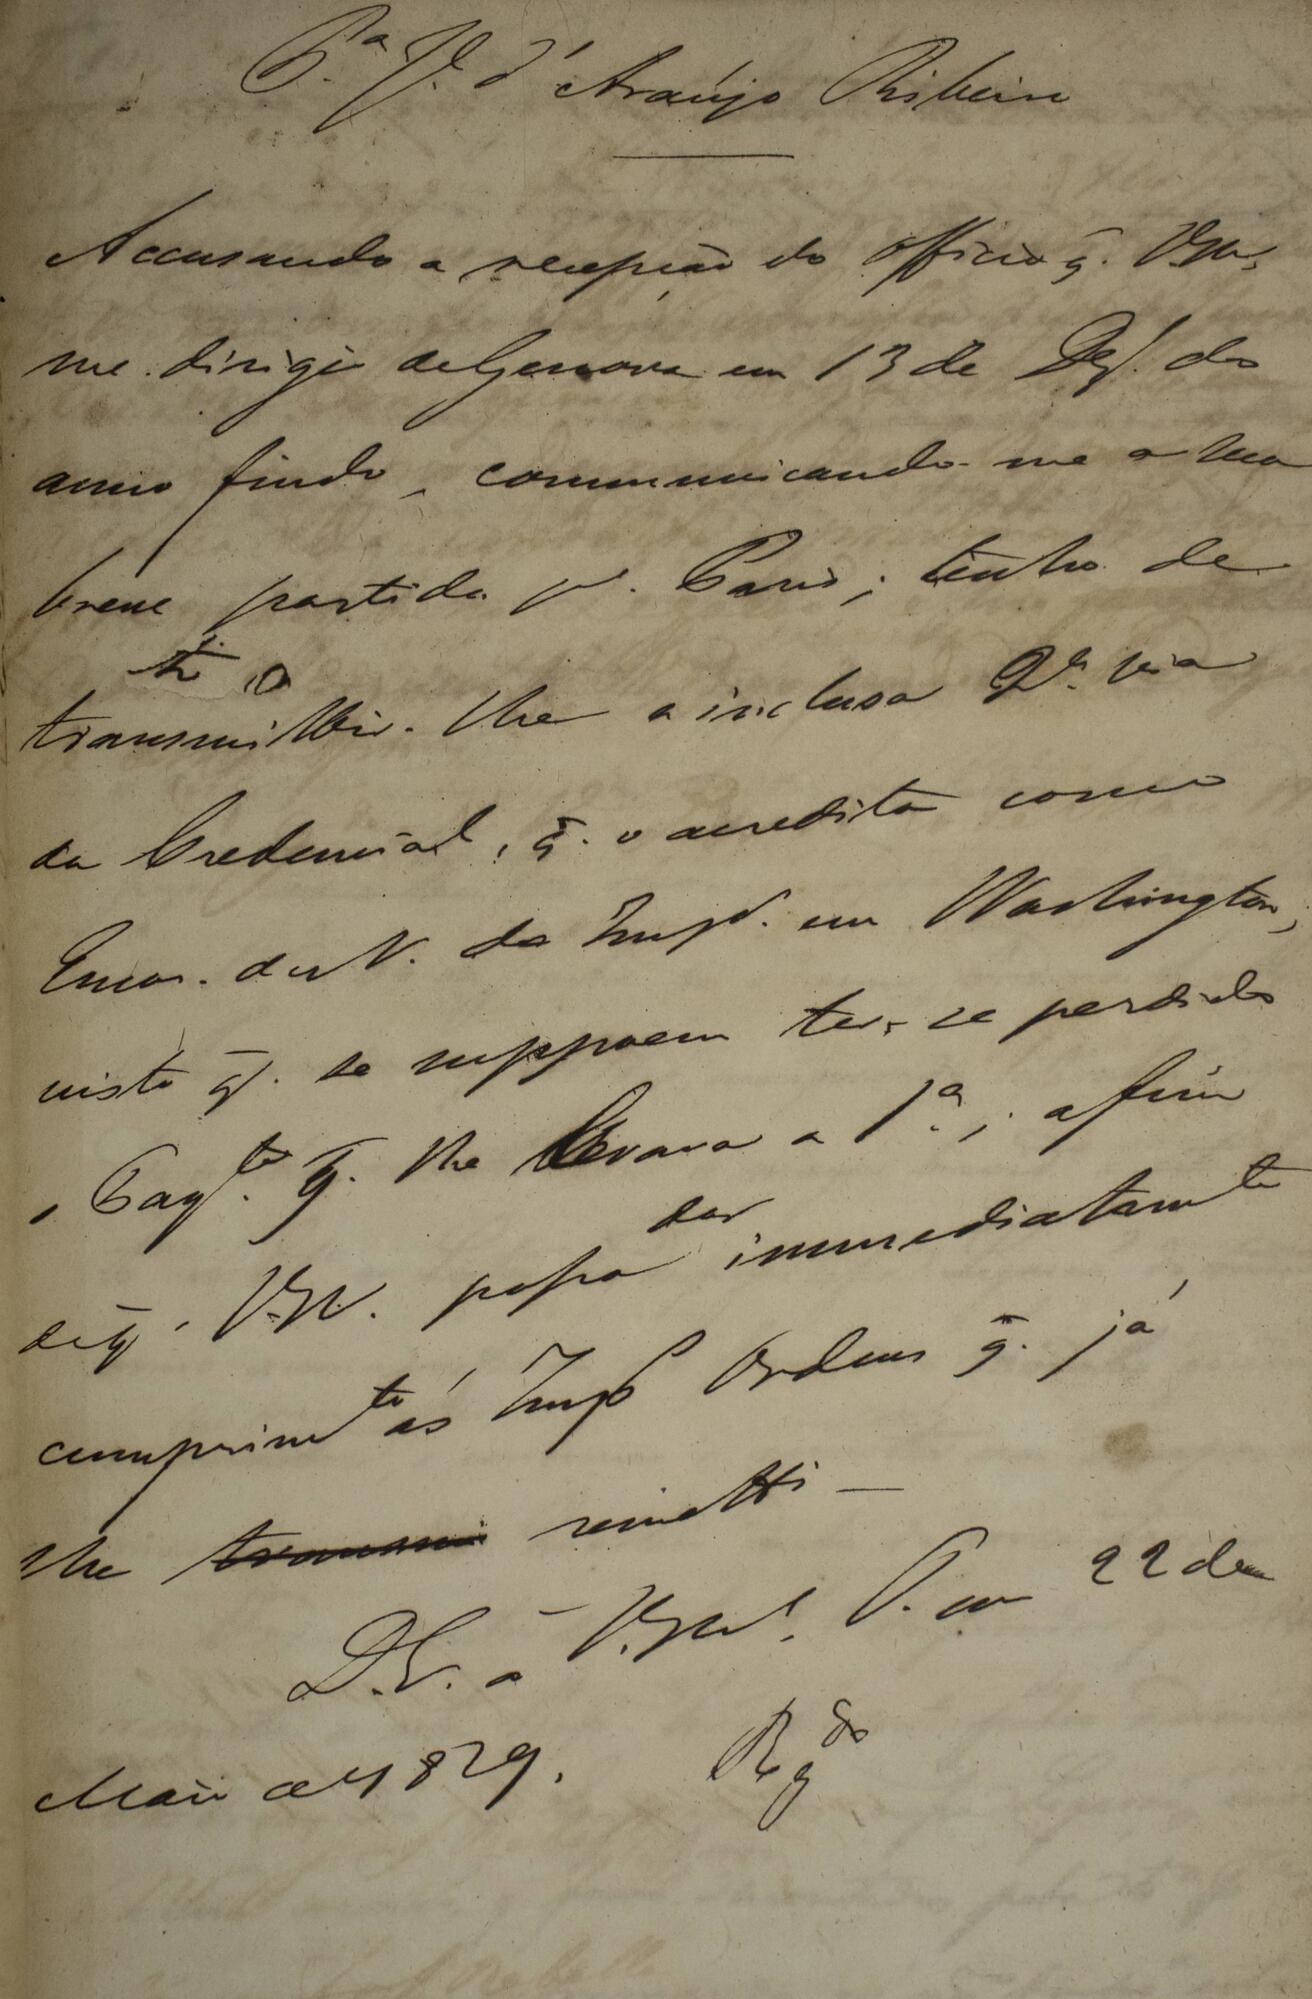 Pa. J. d'Araujo Ribeiro
Accusando a recepção do officio q̃. VM.
me dirigio de Genova em 13 de Dezº. do
anno findo, communicando-me a sua
breve partida pª. Paris; tenho de
transmittir-lhe a inclusa 2ª. via
da Credencial, q̃. o acredita como
Encar. de N. do Impº. em Washington,
visto q̃. se suppoem ter-se perdido
o Paqte. q̃. lhe levava a 1ª.; afim
de q̃' VM. possa dar immediatamte
cumprimto ás Imps Ordens q̃. já
lhe transmi remetti —
D. G. a VM. P. em 22 de
Maio de 1829.